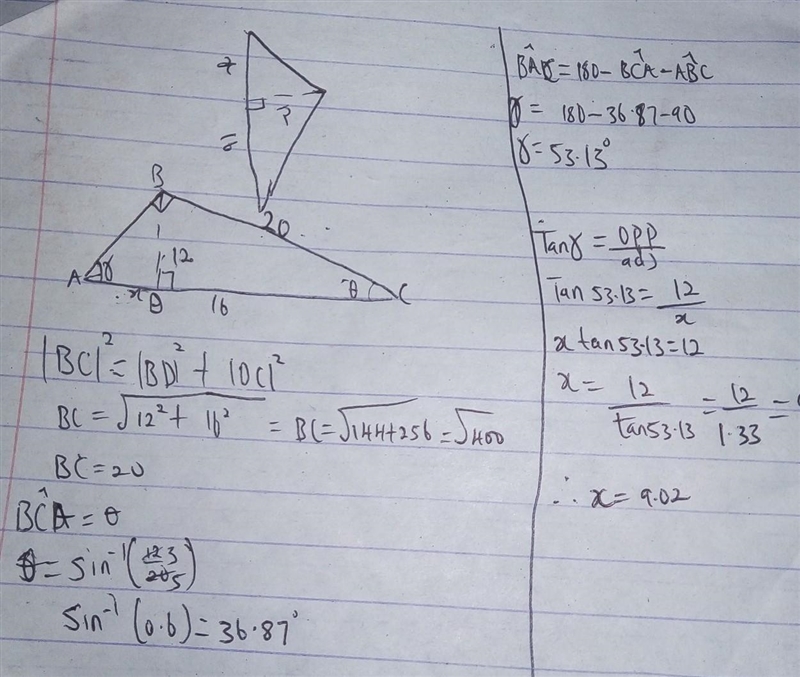 B
20
12
A γ
x
16
θ C
|BC|² = |BD|² + |DC|²
BC = √12² + 16² = BC = √144+256 = √400
BC = 20
BĈA = θ
θ = sin⁻¹(3/5)
sin⁻¹(0.6) = 36.87°
BÂC = 180 - BĈA - AB̂C
γ = 180 - 36.87 - 90
γ = 53.13°
Tanγ = opp/adj
Tan 53.13 = 12/x
x tan53.13 = 12
x = 12/tan53.13 = 12/1.33 =
∴ x = 9.02